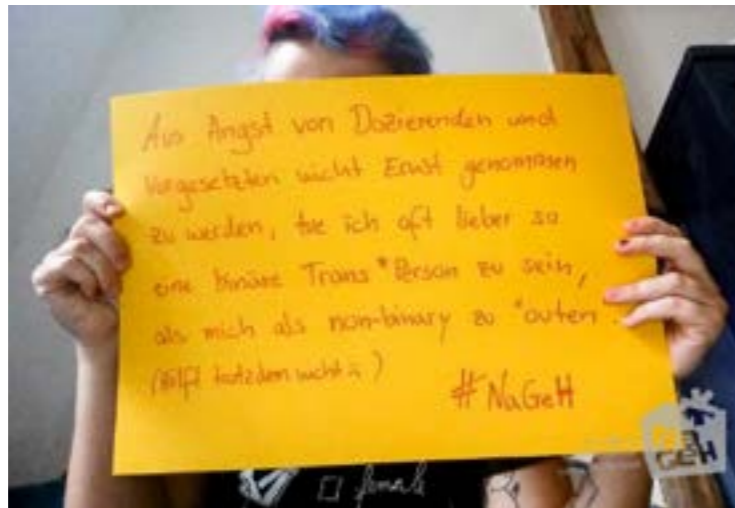 Aus Angst von Dozierenden und
Vorgesetzten nicht Ernst genommen
zu werden, tue ich oft lieber so
eine binäre Trans*Person zu sein,
als mich als non-binary zu "outen".
(Hilft trotzdem nicht)
#NaGeH
female
GEH